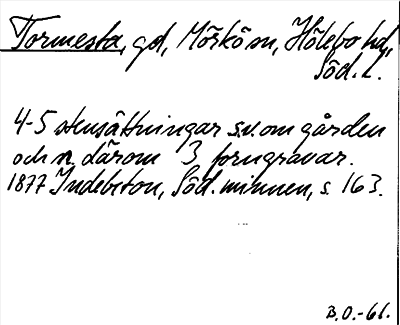 Tormesta, gd, Mörkö sn, Hölebo hd,
Söd. l.
4-5 stensättningar sv. om gården
och n. därom 3 forngravar.
1877 Indebeton, Söd. minnen, s. 163.
B.O.-61.